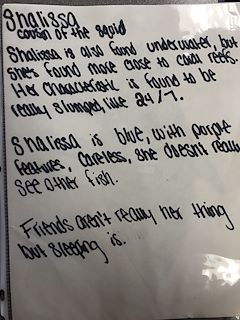 Shalissa
cousin of the squid
Shalissa is also found underwater but
she's found more close to coral reefs.
Her characteristic is found to be
really slumped, like 24/7.
Shalissa is blue, with purple
features, careless, she doesn't really
see other fish.
Friends aren't really her thing
but sleeping is.